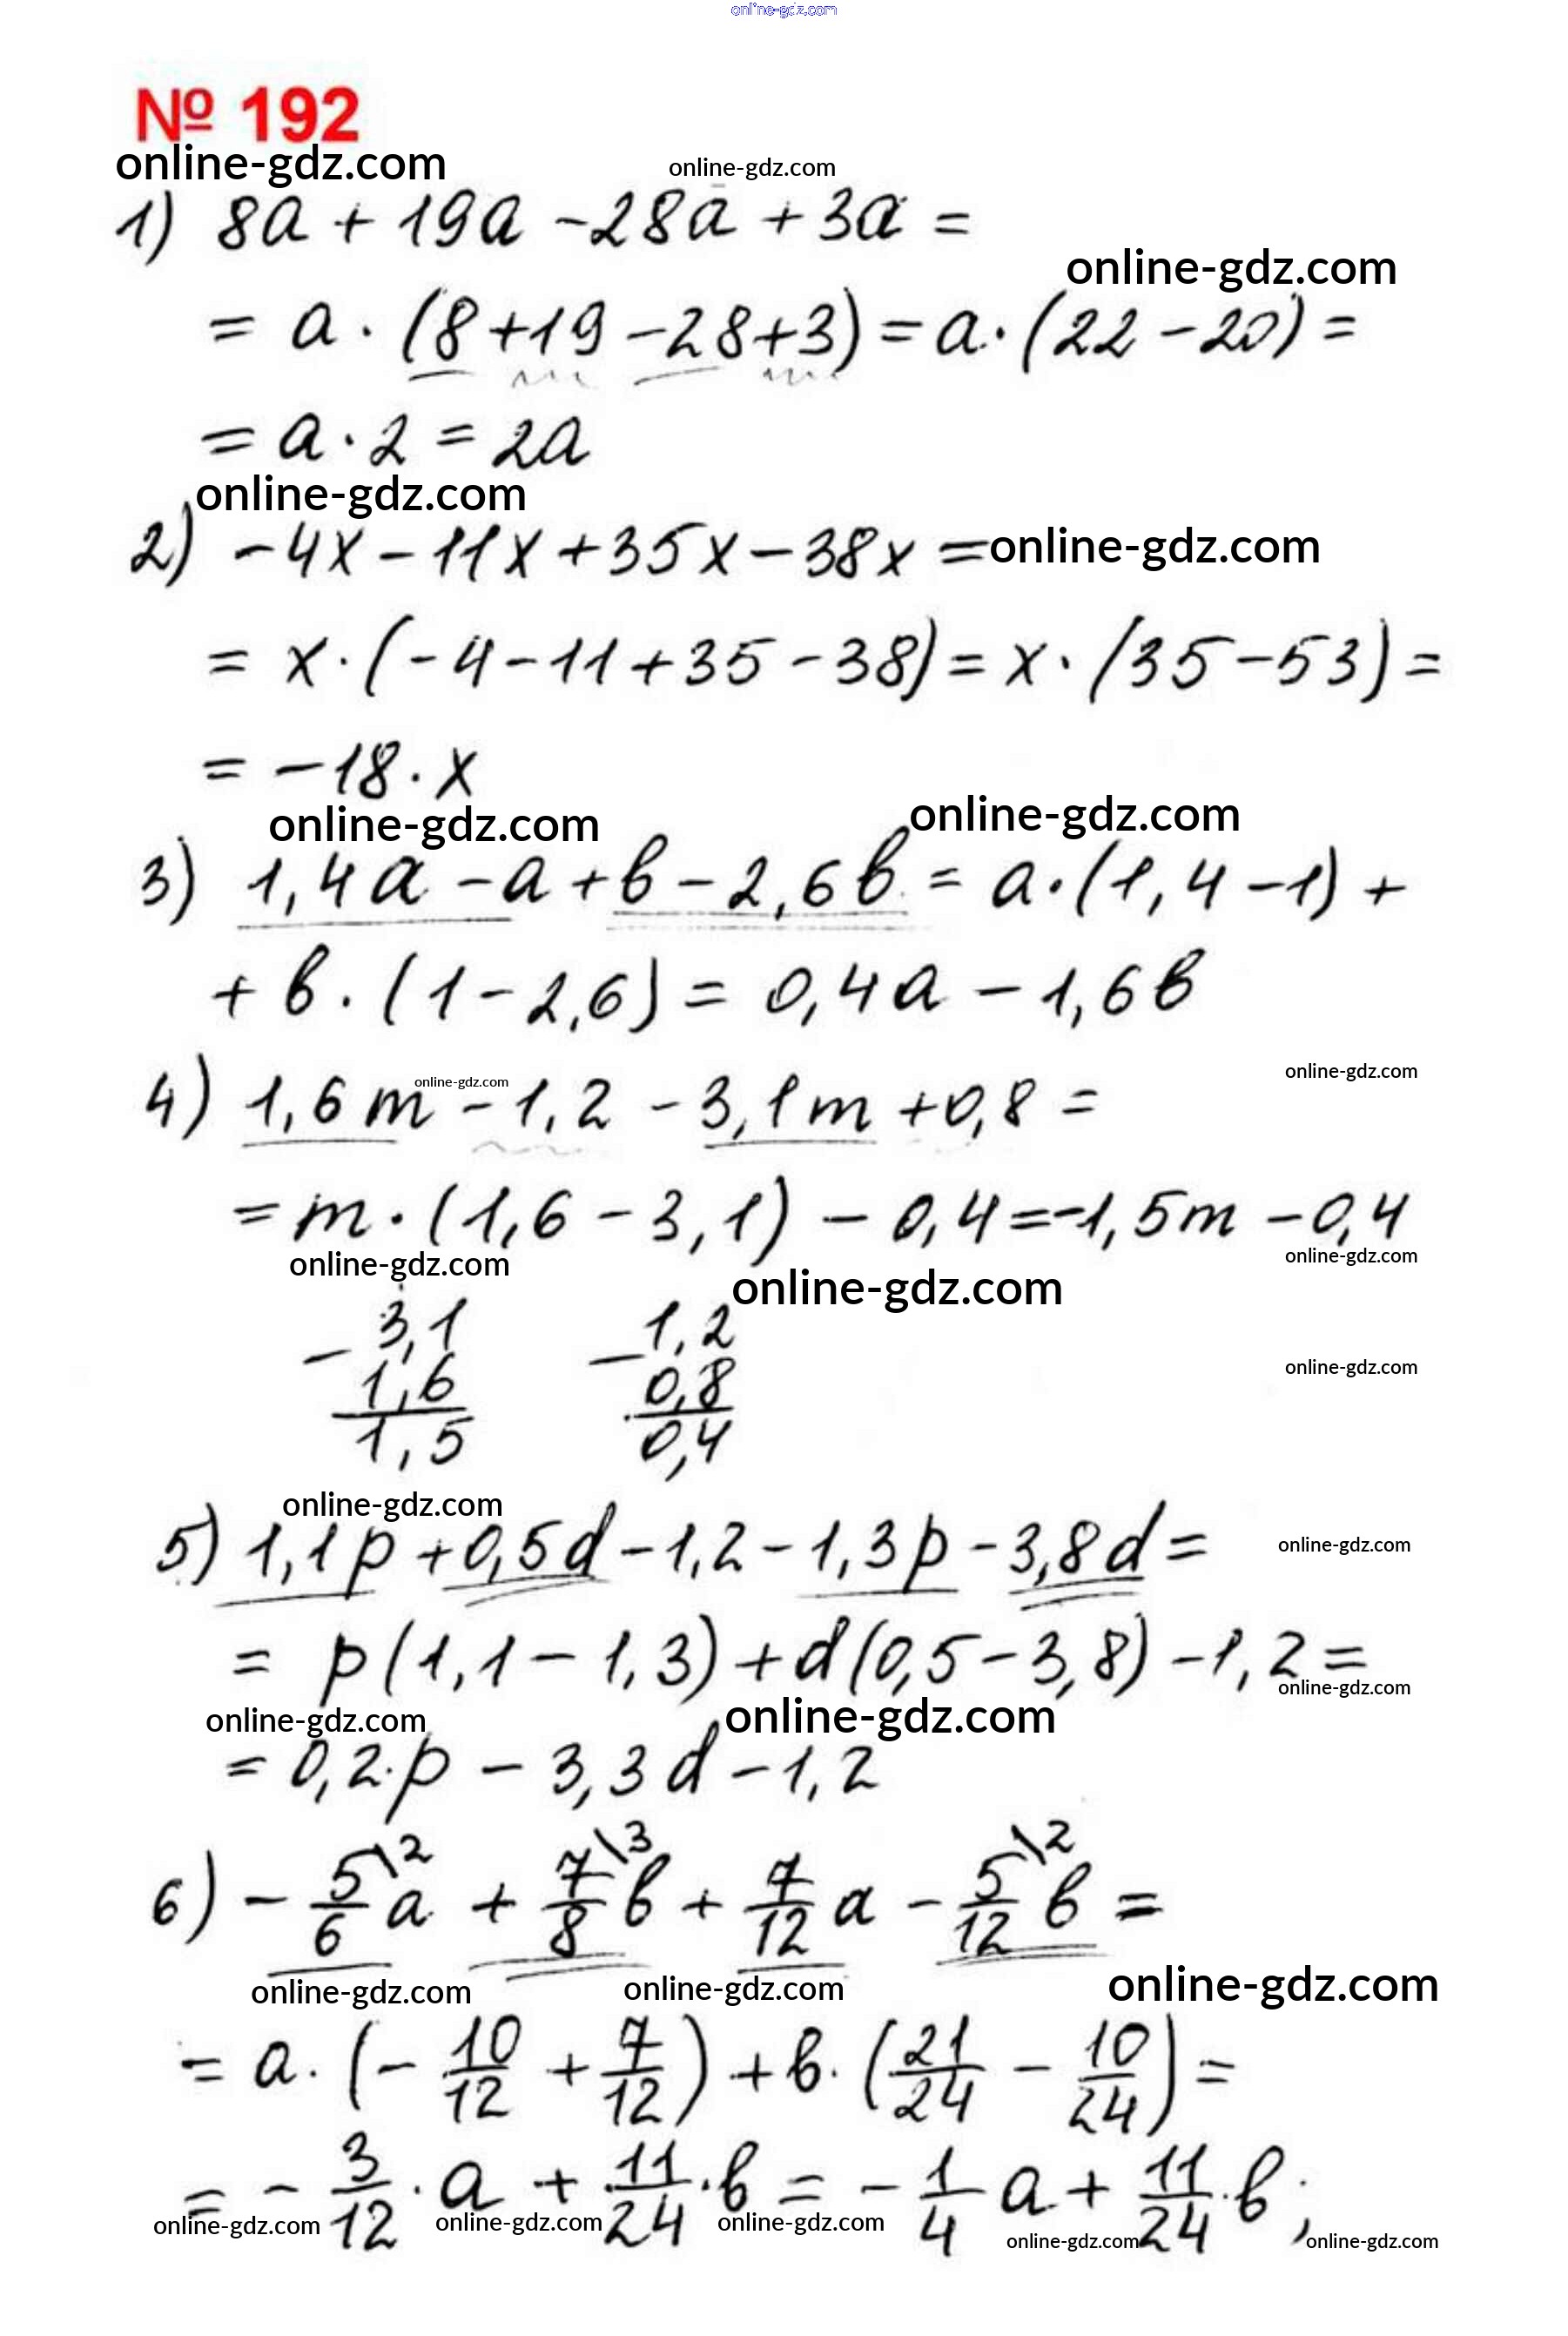 online-gdz.com
№ 192
online-gdz.com online-gdz.com
1) 8a + 19a - 28a + 3a =
online-gdz.com
= a · (8+19-28+3) = a · (22-20) =
= a · 2 = 2a
online-gdz.com
2) -4x - 11x + 35x - 38x = online-gdz.com
= x · (-4-11+35-38) = x · (35-53) =
= -18 · x
online-gdz.com online-gdz.com
3) 1,4a - a + b - 2,6b = a · (1,4-1) +
+ b · (1-2,6) = 0,4a - 1,6b
online-gdz.com online-gdz.com
4) 1,6m - 1,2 - 3,1m + 0,8 =
= m · (1,6 - 3,1) - 0,4 = -1,5m - 0,4
online-gdz.com online-gdz.com online-gdz.com
- 3,1 - 1,2
1,6 0,8
1,5 0,4
online-gdz.com
online-gdz.com
5) 1,1p + 0,5d - 1,2 - 1,3p - 3,8d =
online-gdz.com
= p(1,1 - 1,3) + d(0,5 - 3,8) - 1,2 =
online-gdz.com
online-gdz.com online-gdz.com
= 0,2 · p - 3,3d - 1,2
6) - 5/6\2 a + 7/8\3 b + 7/12 a - 5/12\2 b =
online-gdz.com online-gdz.com online-gdz.com
= a · (- 10/12 + 7/12) + b · (21/24 - 10/24) =
= - 3/12 · a + 11/24 · b = - 1/4 a + 11/24 · b ;
online-gdz.com online-gdz.com online-gdz.com online-gdz.com online-gdz.com